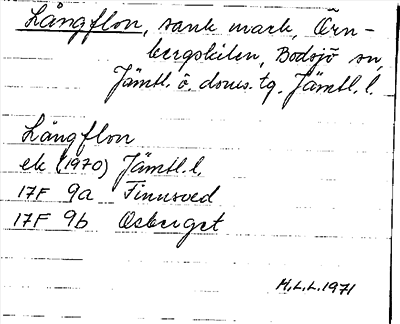 Långflon, sank mark, Örn-
bergskilen, Bodsjö sn,
Jämtl. ö. doms. tg. Jämtl. l.
Långflon
ek (1970) Jämtl. l.
17F 9a Finnsved
17F 9b Osberget
M.L.L. 1971